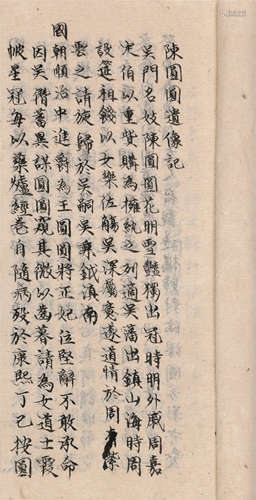 陳圓圓遺像記
吳門名妓陳圓圓花明雪豔獨出冠時明外戚周嘉
定伯以重貲購為擁紈之列適吳藩出鎮山海時周
設筵相餞以女樂佐觴吳深屬遂道情於周紫
雲之請旋歸於吳嗣吳乘鉞滇南
國朝順治中進爵為王圓圓將正妃位堅辭不敢承命
因吳潛蓄異謀圓圓窺其微以為暮請為女道士霞
帔星冠每以藥爐經卷自隨病歿於康熙丁巳按圓